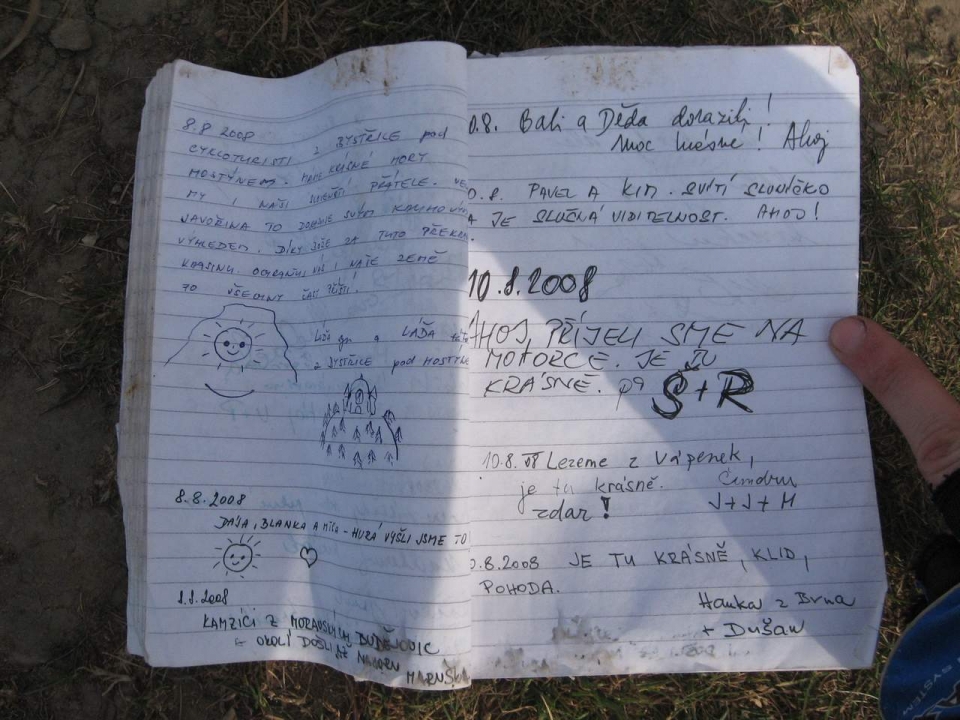 8.8 2008
CYKLOTURISTI Z BYSTŘICE pod
HOSTÝNEM. MÁME KRÁSNÉ HORY
MY I NAŠI PŘÁTELE.
JAVOŘINA TO SVÝM
VÝHLEDEM. DÍKY BOŽE ZA TUTO
KRAJINU OCHRAŇUJ NÁS I NAŠE ZEMĚ
TO VŠECHNY
LÁĎA
z BYSTŘICE pod HOSTÝN
8.8.2008
DÁŠA, BLANKA A Míla - HURÁ VYŠLI JSME TO
8.8.2008
KAMZÍCI Z MORAVSKÝCH BUDĚJOVIC
OKOLÍ DOŠLI AŽ NAHORU
0.8. Bali a Děda dorazili!
Moc krásné! Ahoj
0.8. PAVEL A KIM. SVÍTÍ SLUNÍČKO
A JE SLUČNÁ VIDITELNOST. AHOJ!
10.8.2008
AHOJ, PŘIJELI SME NA
MOTORCE. JE TU
KRÁSNĚ. S+R
10.8.08 Lezeme z Vápenek,
je tu krásně.
zdar! J+J+M
0.8.2008 JE TU KRÁSNĚ, KLID,
POHODA.
Hanka z Brna
+ Dušan